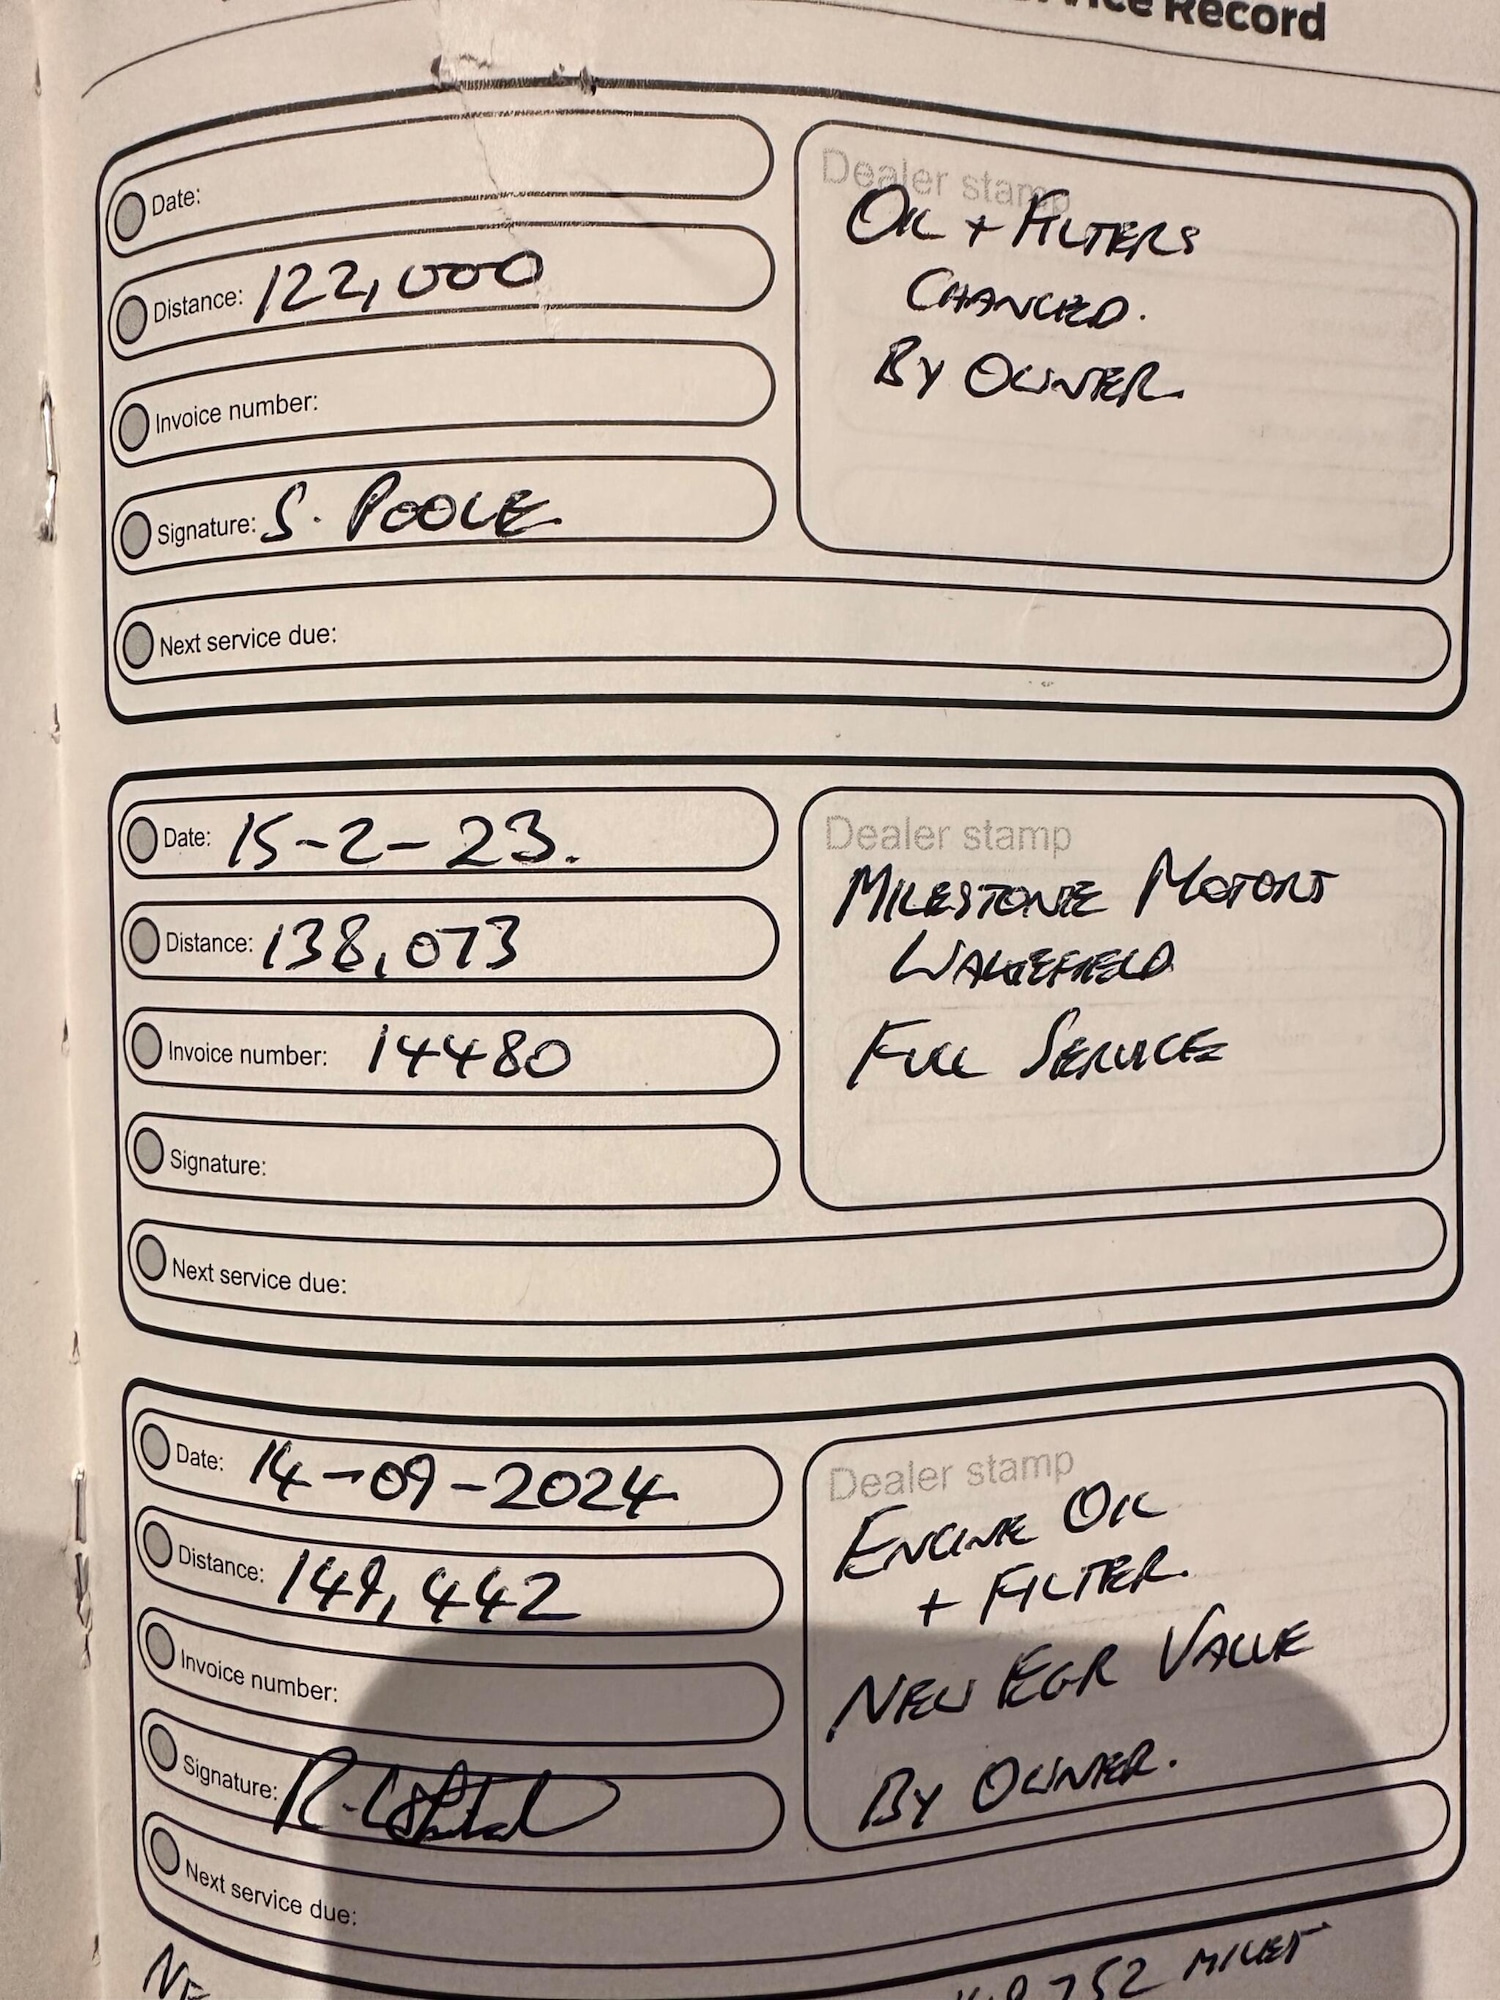 Record
Date:
Distance: 122,000
Invoice number:
Signature: S. POOLE
Next service due:
Dealer stamp
OIL + FILTERS
CHANGED.
BY OWNER.
Date: 15-2-23.
Distance: 138,073
Invoice number: 14480
Signature:
Next service due:
Dealer stamp
MILESTONE MOTORS
WAKEFIELD
FULL SERVICE
Date: 14-09-2024
Distance: 149,442
Invoice number:
Signature:
Next service due:
Dealer stamp
ENGINE OIL
+ FILTER.
NEW EGR VALVE
BY OWNER.
MILES